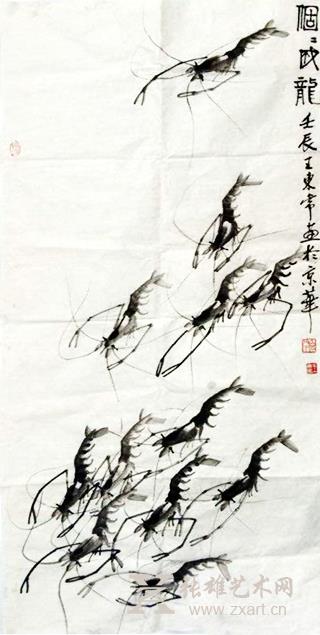 個〻成龍
壬辰王東常畫於京華
张雄艺术网
www.zxart.cn